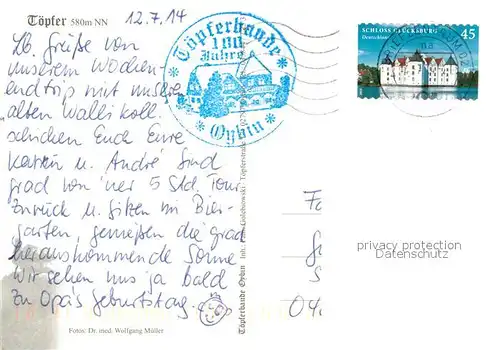 Töpfer 580m NN
12.7.14
Lb. Grüße von
unserem Wochen-
endtrip mit unseren
"alten Wallikoll
schicken Euch Eure
Katrin u. André. Sind
grad von 'ner 5 Std. Tour
zurück u. sitzen im Bier-
garten, genießen die grad
herauskommende Sonne
Wir sehen uns ja bald
zu Opa's Geburtstag.
Fotos: Dr. med. Wolfgang Müller
Töpferbaude
100
Jahre
Oybin
Töpferbaude Oybin
SCHLOSS GLÜCKSBURG
Deutschland
45
privacy protection
Datenschutz
04